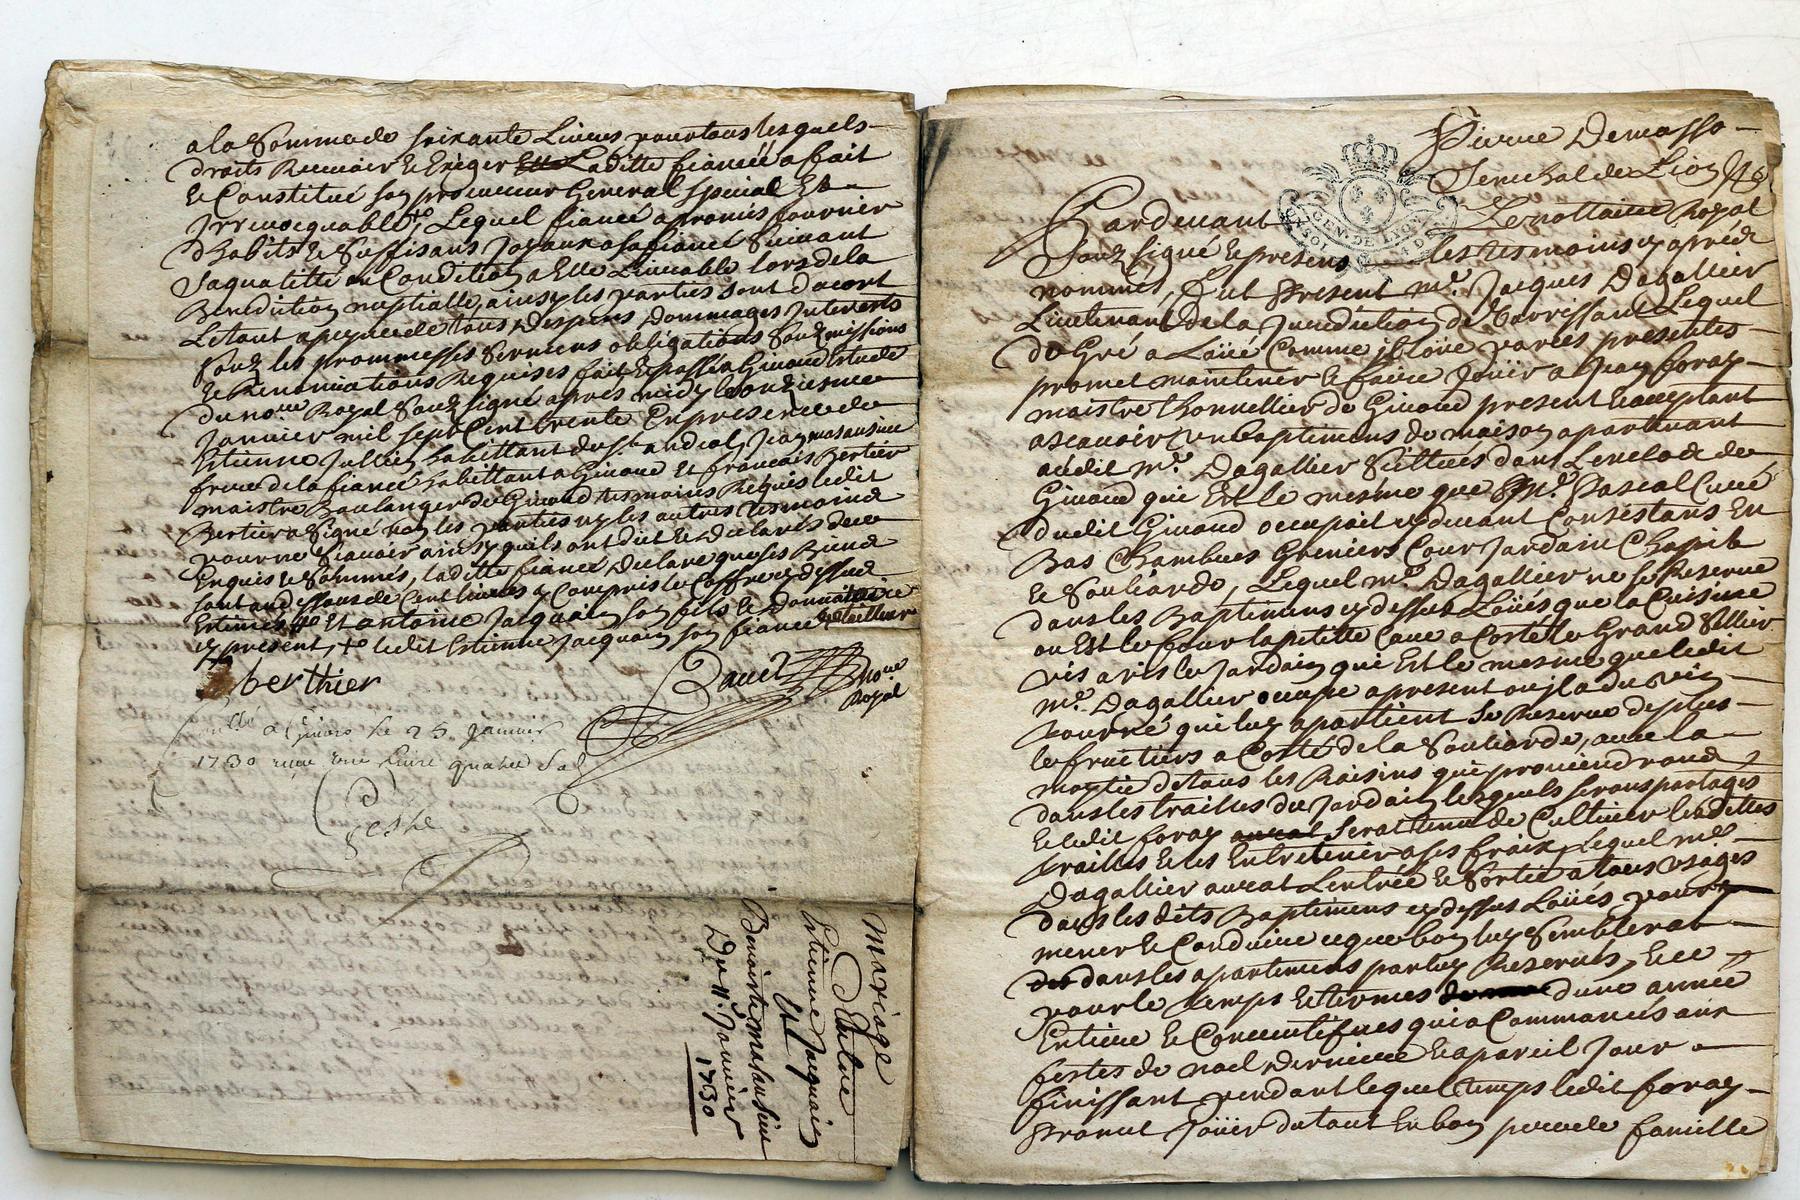 a la Somme de soixante Livres pour tous lesquels
droits Recevoir & Exiger Laditte fiancée a fait
& Constitué son procureur General special Et
Irrevocquable, Lequel fiancé a promis fournir
d'habits & Suffisans Joyaux a sa fiancé Suivant
Sa quallitté ou Condition a Elle Livrable lors de la
Benediction nuptialle, ainsy les parties sont dacort
Lestant a peyne de tous despens Dommages Interests
Souz les prommesses Sermens obligations Soubmissions
& Renonciations Requises fait & passé a Givord Estude
du no.re Royal Souz signé apres midy le onzieme
Janvier mil sept Cent trente En presence de
Estienne Jullien habittant de S.t andeol, Jean
frere de la fiancé habittant a Givord Et francois Bertier
maistre Boulanger de Givord tesmoins Requis ledit
Bertier a Signé non les parties ny les autres tesmoins
pour ne scavoir ainsy quils ont dit & declarés de ce
Enquis & Sommés, laditte fiancé declare que ses Biens
sont au dessous de Cent livres y Compris le Coffre cy dessus
Estimés Et antoine Jacquain son fils & Donnataire
cy present, ledit Estienne Jacquain son fiancé
berthier
no.re
Royal
a Givord le 25 Janvier
1730 reçu une Livre quatre Sol
Mariage
D'entre
Estienne Jacquain
Et
Benoiste
Du 11.e Janvier
1730
Pierre Demasso
Senechal de Lion
GEN. DE LYON
Pardevant Le nottaire Royal
Souz signé & presens les tesmoins cy aprés
nommés, fut present m.e Jacques Dagallier
Lieutenant de la Jurisdiction de Lequel
de Gré a Loüé Comme il loüe par ces presentes
promet maintenir & faire Joüir a Jean foray
maistre thonnellier de Givord present & acceptant
ascavoir un baptimens de maison apartenant
audit m.e Dagallier Scittués dans Lenclos de
Givord qui Est le mesme que M.e Pascal Curé
dudit Givord occupait cy devant Consistans En
Bas Chambres Greniers Cour Jardain Chapit
& Souliardo, Lequel m.e Dagallier ne se Reserve
dans les Baptimens cy dessus Loüés que la Cuisine
ou Est le four la petitte Cave a Costé le Grand Sellier
vis a vis le Jardain qui Est le mesme que ledit
m.e Dagallier occupe apresent ou jl a du vin
fourré qui luy apartient Se Reserve de plus
le fruitiers a Costé de la Souliarde, avec la
moytié de tous les Raisins qui proviendrond
dans les trailles du Jardain lesquels seront partagés
& ledit foray Serat tenu de Cultiver lesdittes
trailles & les Entretenir a ses fraix, Lequel m.e
Dagallier aurat Lentrée & Sortie a tous usages
dans les dits Baptimens cy dessus Loüés, pour y
mener & Conduire ce que bon luy Semblerat
dans les apartemens par luy Reservés, & ce
pour le temps & termes dune année
Entiere & Consecutifves qui a Commancés aux
festes de noel derniere & a pareil Jour
finissant pendant lequel temps ledit foray
Promet Joüir du tout En bon pere de famille